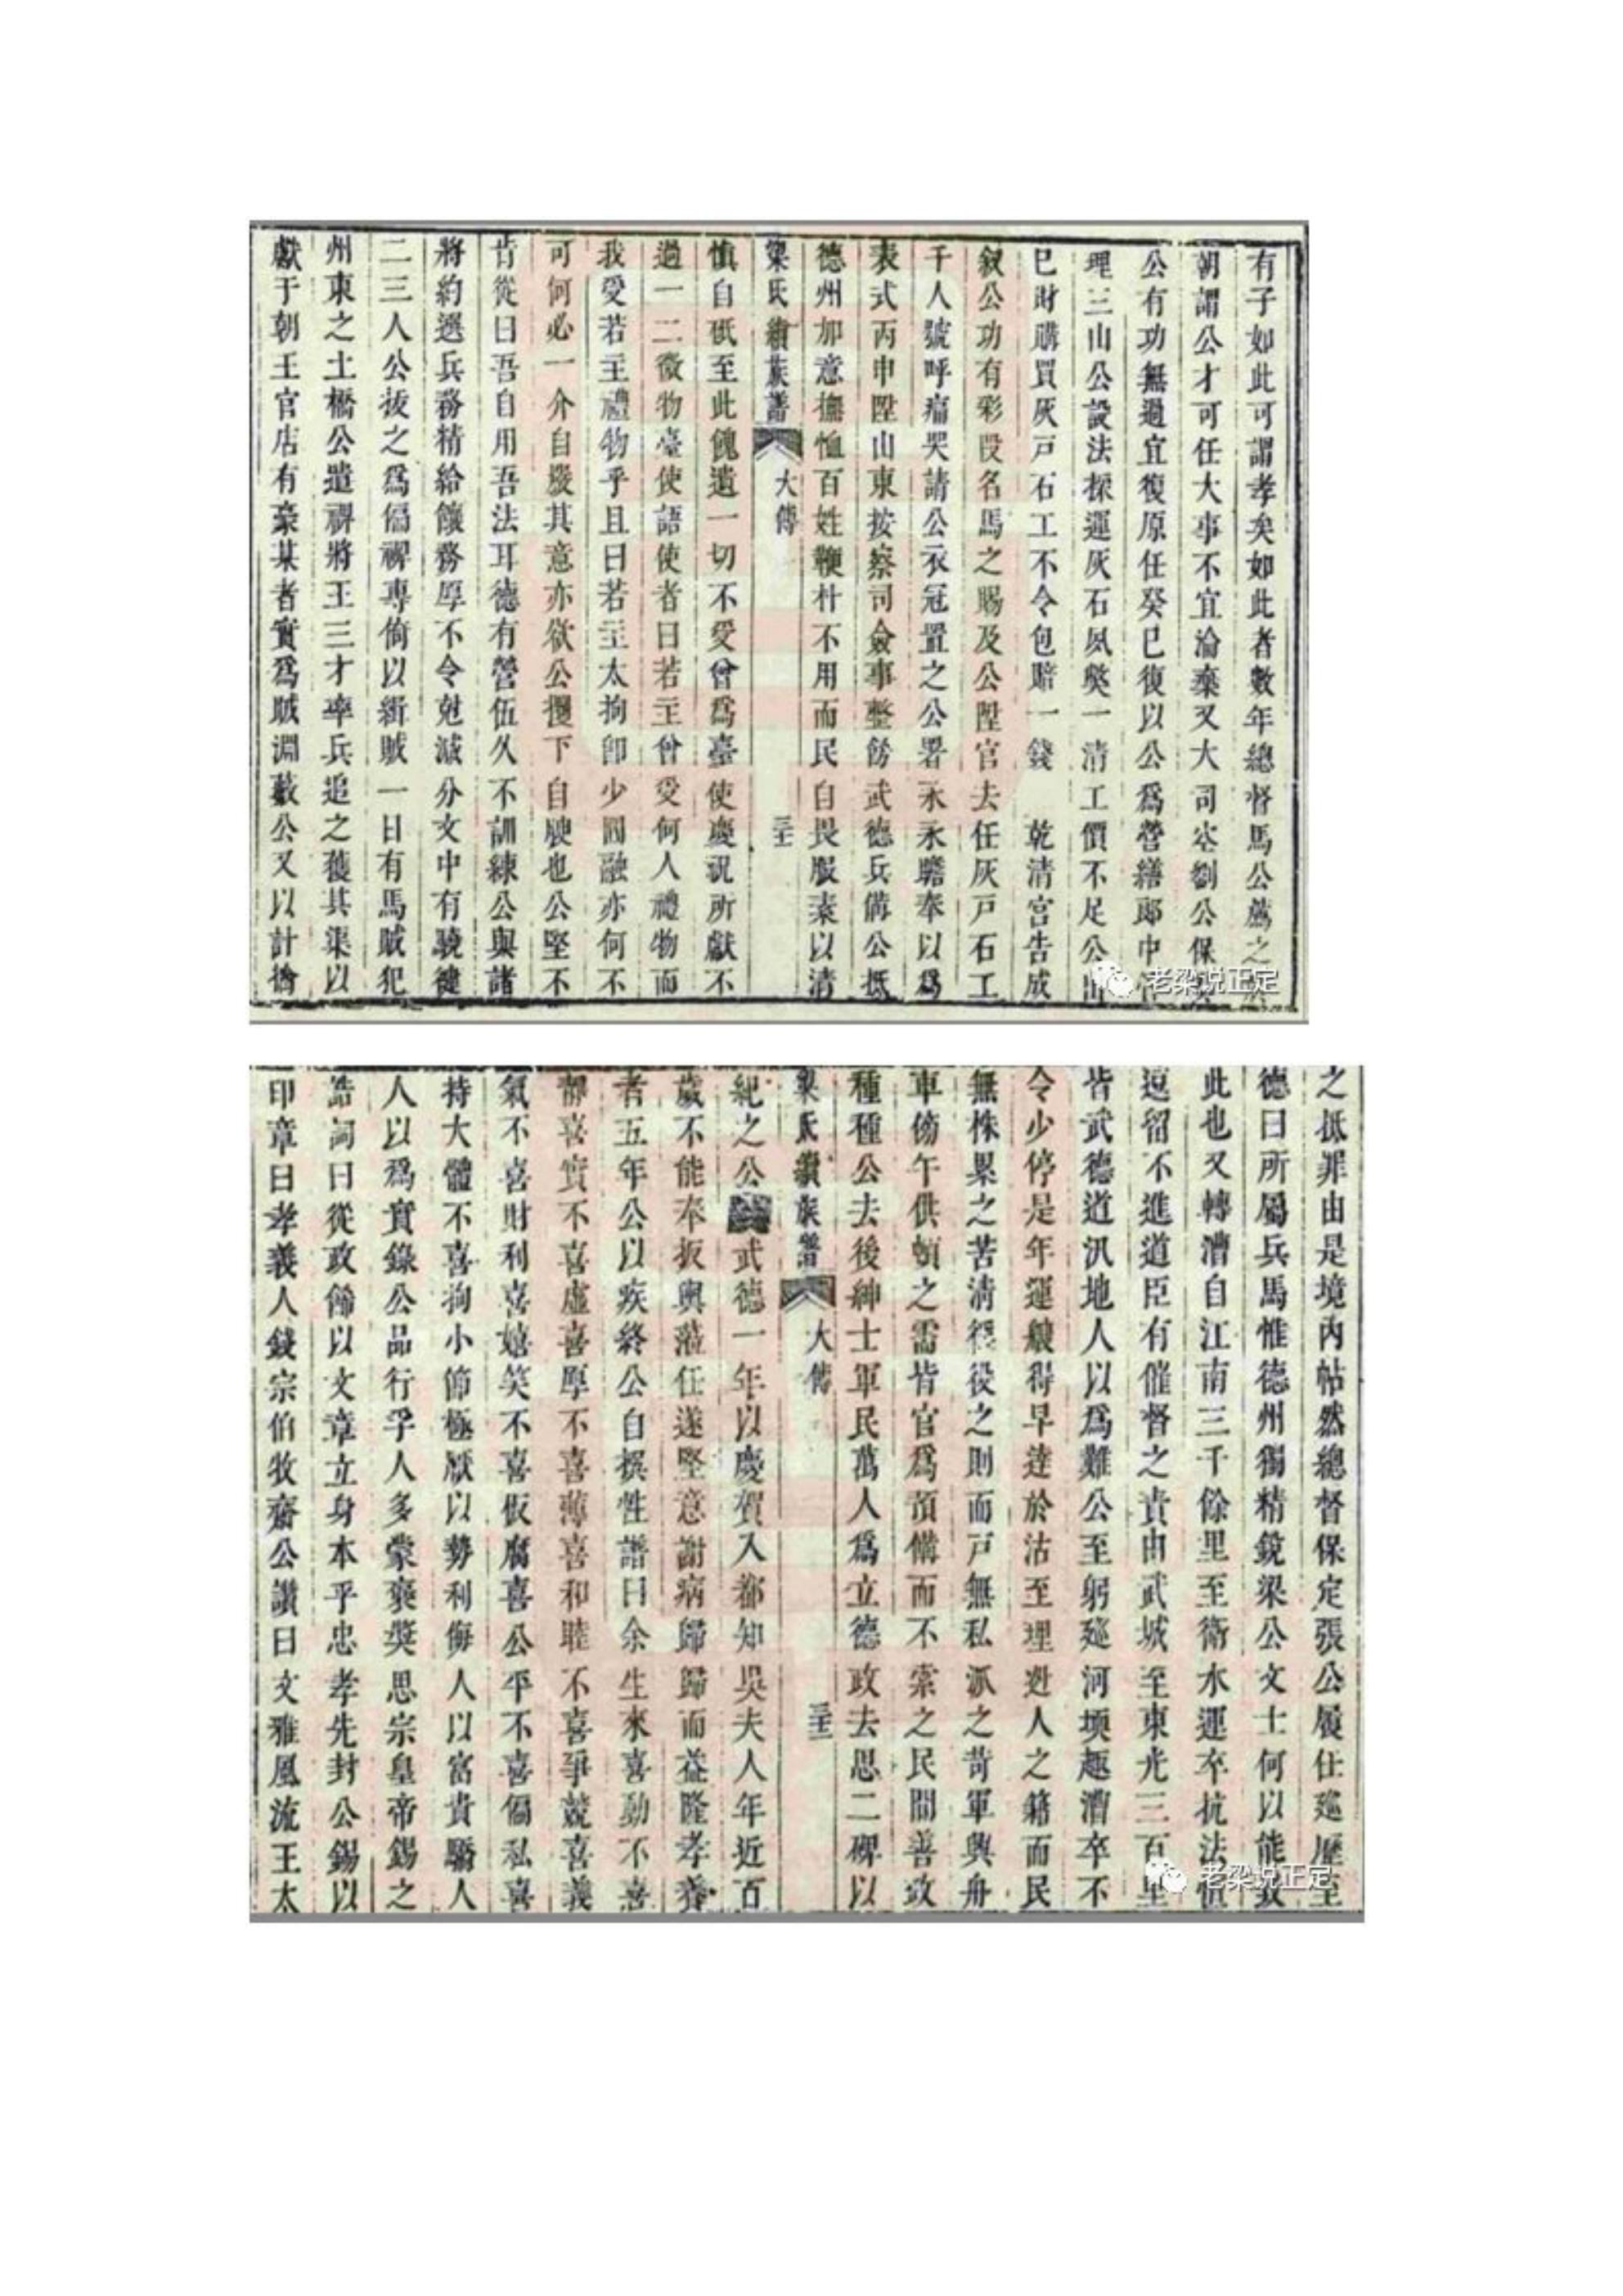 有子如此可謂孝矣如此者數年總督馬公薦之
朝謂公才可任大事不宜淪棄又大司空劉公保
公有功無過宜復原任癸巳復以公為營繕郎中
理三山公設法採運灰石夙獘一清工價不足公出
已財購買灰戶石工不令包賠一錢　乾清宮告成
叙公功有彩叚名馬之賜及公陞官去任灰戶石工
千人號呼痛哭請公衣冠置之公署永永瞻奉以爲
表式丙申陞山東按察司僉事整飭武德兵備公抵
德州加意撫恤百姓鞭朴不用而民自畏服素以清
梁氏續族譜　大傳　三十
慎自砥至此餽遺一切不受曾爲臺使慶祝所獻不
過一二微物臺使語使者曰若主曾受何人禮物而
我受若主禮物乎且曰若主太拘卽少圓融亦何不
可何必一介自潑其意亦欲公攫下自腴也公堅不
肯從曰吾自用吾法耳德有營伍久不訓練公與諸
將約選兵務精給餉務厚不令尅減分文中有驍健
二三人公拔之爲偏裨專倚以緝賊一日有馬賊犯
州東之土橋公遣裨將王三才率兵追之獲其渠以
獻于朝王官店有豪某者實爲賊淵藪公又以計擒
之抵罪由是境內帖然總督保定張公履任巡歷至
德曰所屬兵馬惟德州獨精銳梁公文士何以能致
此也又轉漕自江南三千餘里至衛水運卒抗法恒
逗留不進道臣有催督之責由武城至東光三百里
皆武德道汛地人以爲難公至躬廵河堧趣漕卒不
令少停是年運艘得早達於沽至理逃人之籍而民
無株累之苦清徭役之則而戶無私派之苛軍興舟
車傍午供頓之需皆官爲預備而不索之民間善政
種種公去後紳士軍民萬人爲立德政去思二碑以
梁氏續族譜　大傳　三十一
紀之公武德一年以慶賀入都知吳夫人年近百
歲不能奉板輿蒞任遂堅意謝病歸歸而益隆孝養
者五年公以疾終公自撰性譜曰余生來喜動不喜
靜喜實不喜虛喜厚不喜薄喜和睦不喜爭競喜義
氣不喜財利喜嬉笑不喜仮腐喜公平不喜偏私喜
持大體不喜拘小節極厭以勢利侮人以富貴驕人
人以爲實錄公品行孚人多蒙褒奨思宗皇帝錫之
誥詞曰從政飾以文章立身本乎忠孝先封公錫以
印章曰孝義人錢宗伯牧齋公讃曰文雅風流王太
老梁说正定
老梁说正定